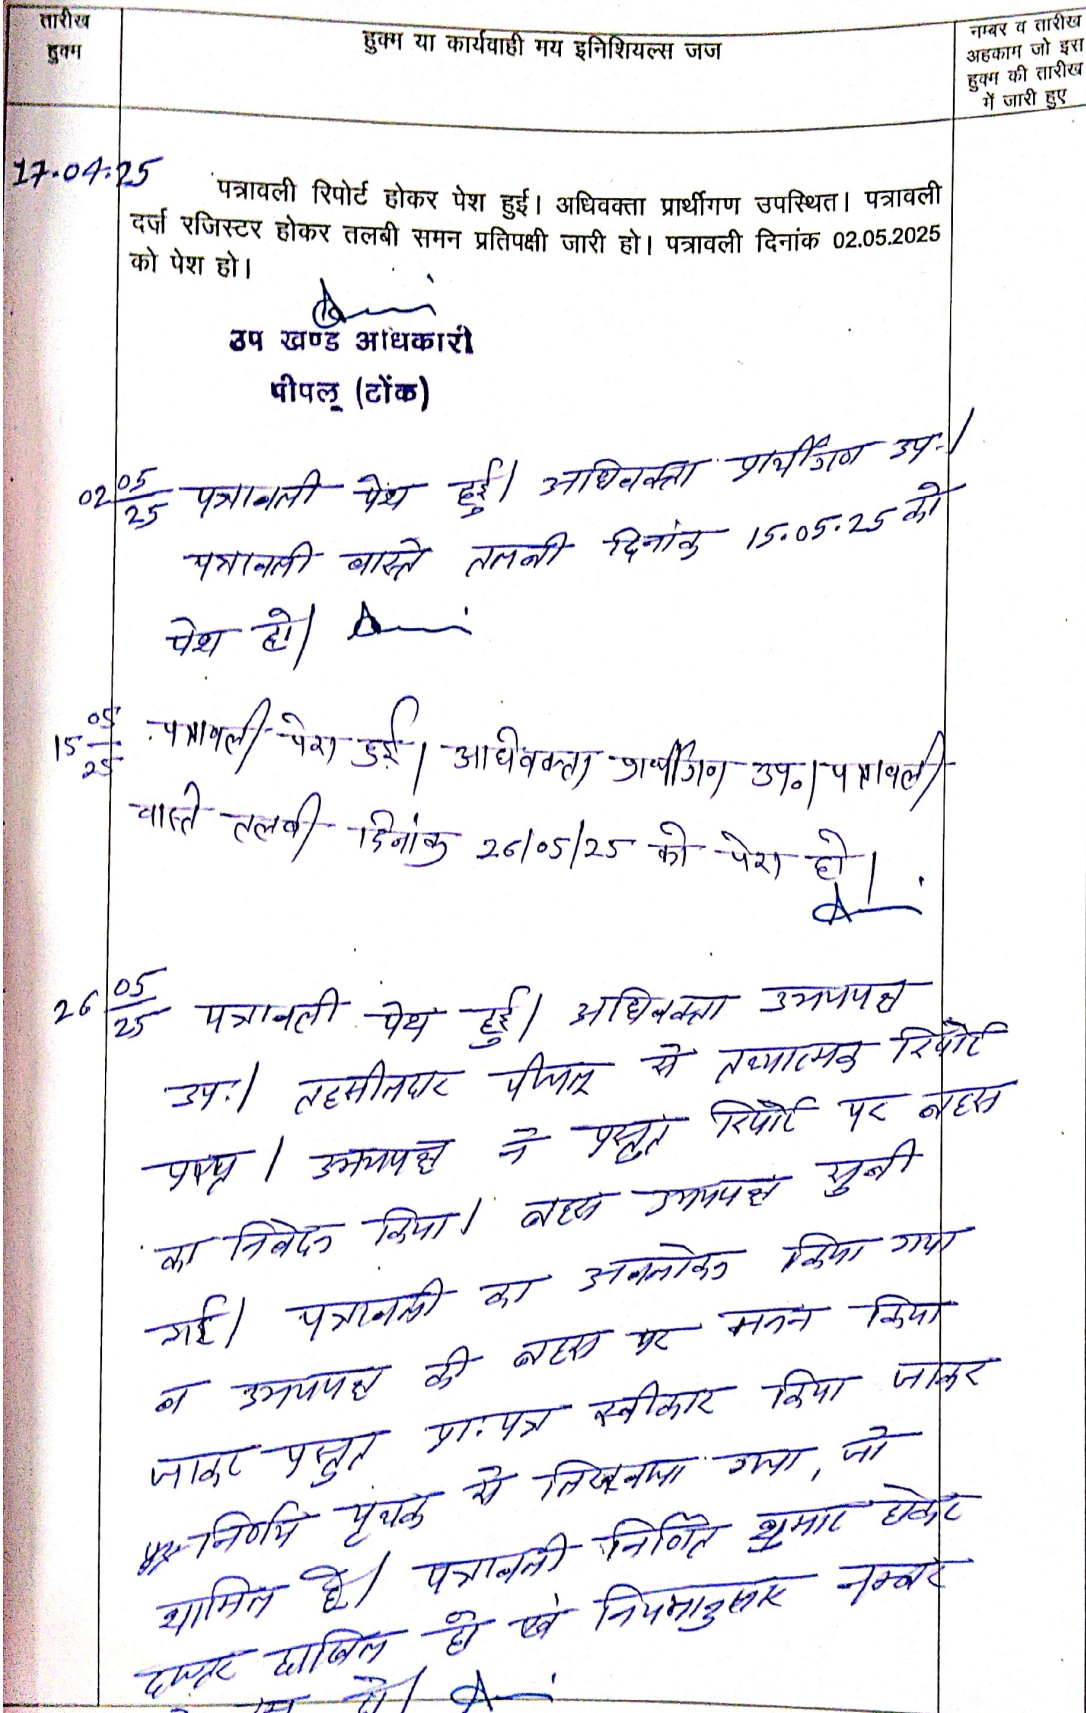 तारीख
हुक्म
हुक्म या कार्यवाही मय इनिशियल्स जज
नम्बर व तारीख
अहकाम जो इस
हुक्म की तारीख
में जारी हुए
17.04.25
पत्रावली रिपोर्ट होकर पेश हुई। अधिवक्ता प्रार्थीगण उपस्थित। पत्रावली
दर्ज रजिस्टर होकर तलबी समन प्रतिपक्षी जारी हो। पत्रावली दिनांक 02.05.2025
को पेश हो।
उप खण्ड अधिकारी
पीपलू (टोंक)
02/05/25 पत्रावली पेश हुई। अधिवक्ता प्रार्थीगण उप.।
पत्रावली वास्ते तलबी दिनांक 15.05.25 को
पेश हो।
15/05/25 पत्रावली पेश हुई। अधिवक्ता प्रार्थीगण उप०। पत्रावली
वास्ते तलबी दिनांक 26/05/25 को पेश हो।
26/05/25 पत्रावली पेश हुई। अधिवक्ता उभयपक्ष
उप.। तहसीलदार पीपलू से तथ्यात्मक रिपोर्ट
प्राप्त। उभयपक्ष ने प्रस्तुत रिपोर्ट पर बहस
का निवेदन किया। बहस उभयपक्ष सुनी
गई। पत्रावली का अवलोकन किया गया
व उभयपक्ष की बहस पर मनन किया
जाकर प्रस्तुत प्रा.पत्र स्वीकार किया जाकर
निर्णय पृथक से लिखवाया गया, जो
शामिल है। पत्रावली निर्णित शुमार होकर
दफ्तर दाखिल हो एवं नियमानुसार नम्बर
हो।